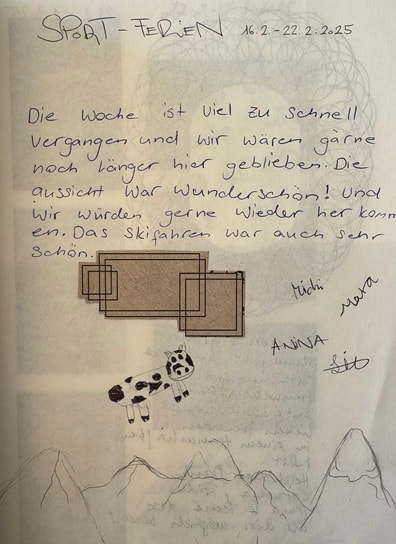 SPORT-FERIEN 16.2.-22.2.2025
Die Woche ist viel zu schnell
vergangen und wir wären gärne
noch länger hier geblieben. Die
aussicht war wunderschön! Und
wir würden gerne wieder her komm
en. Das Skifahren war auch sehr
schön.
Michi
Mara
ANINA